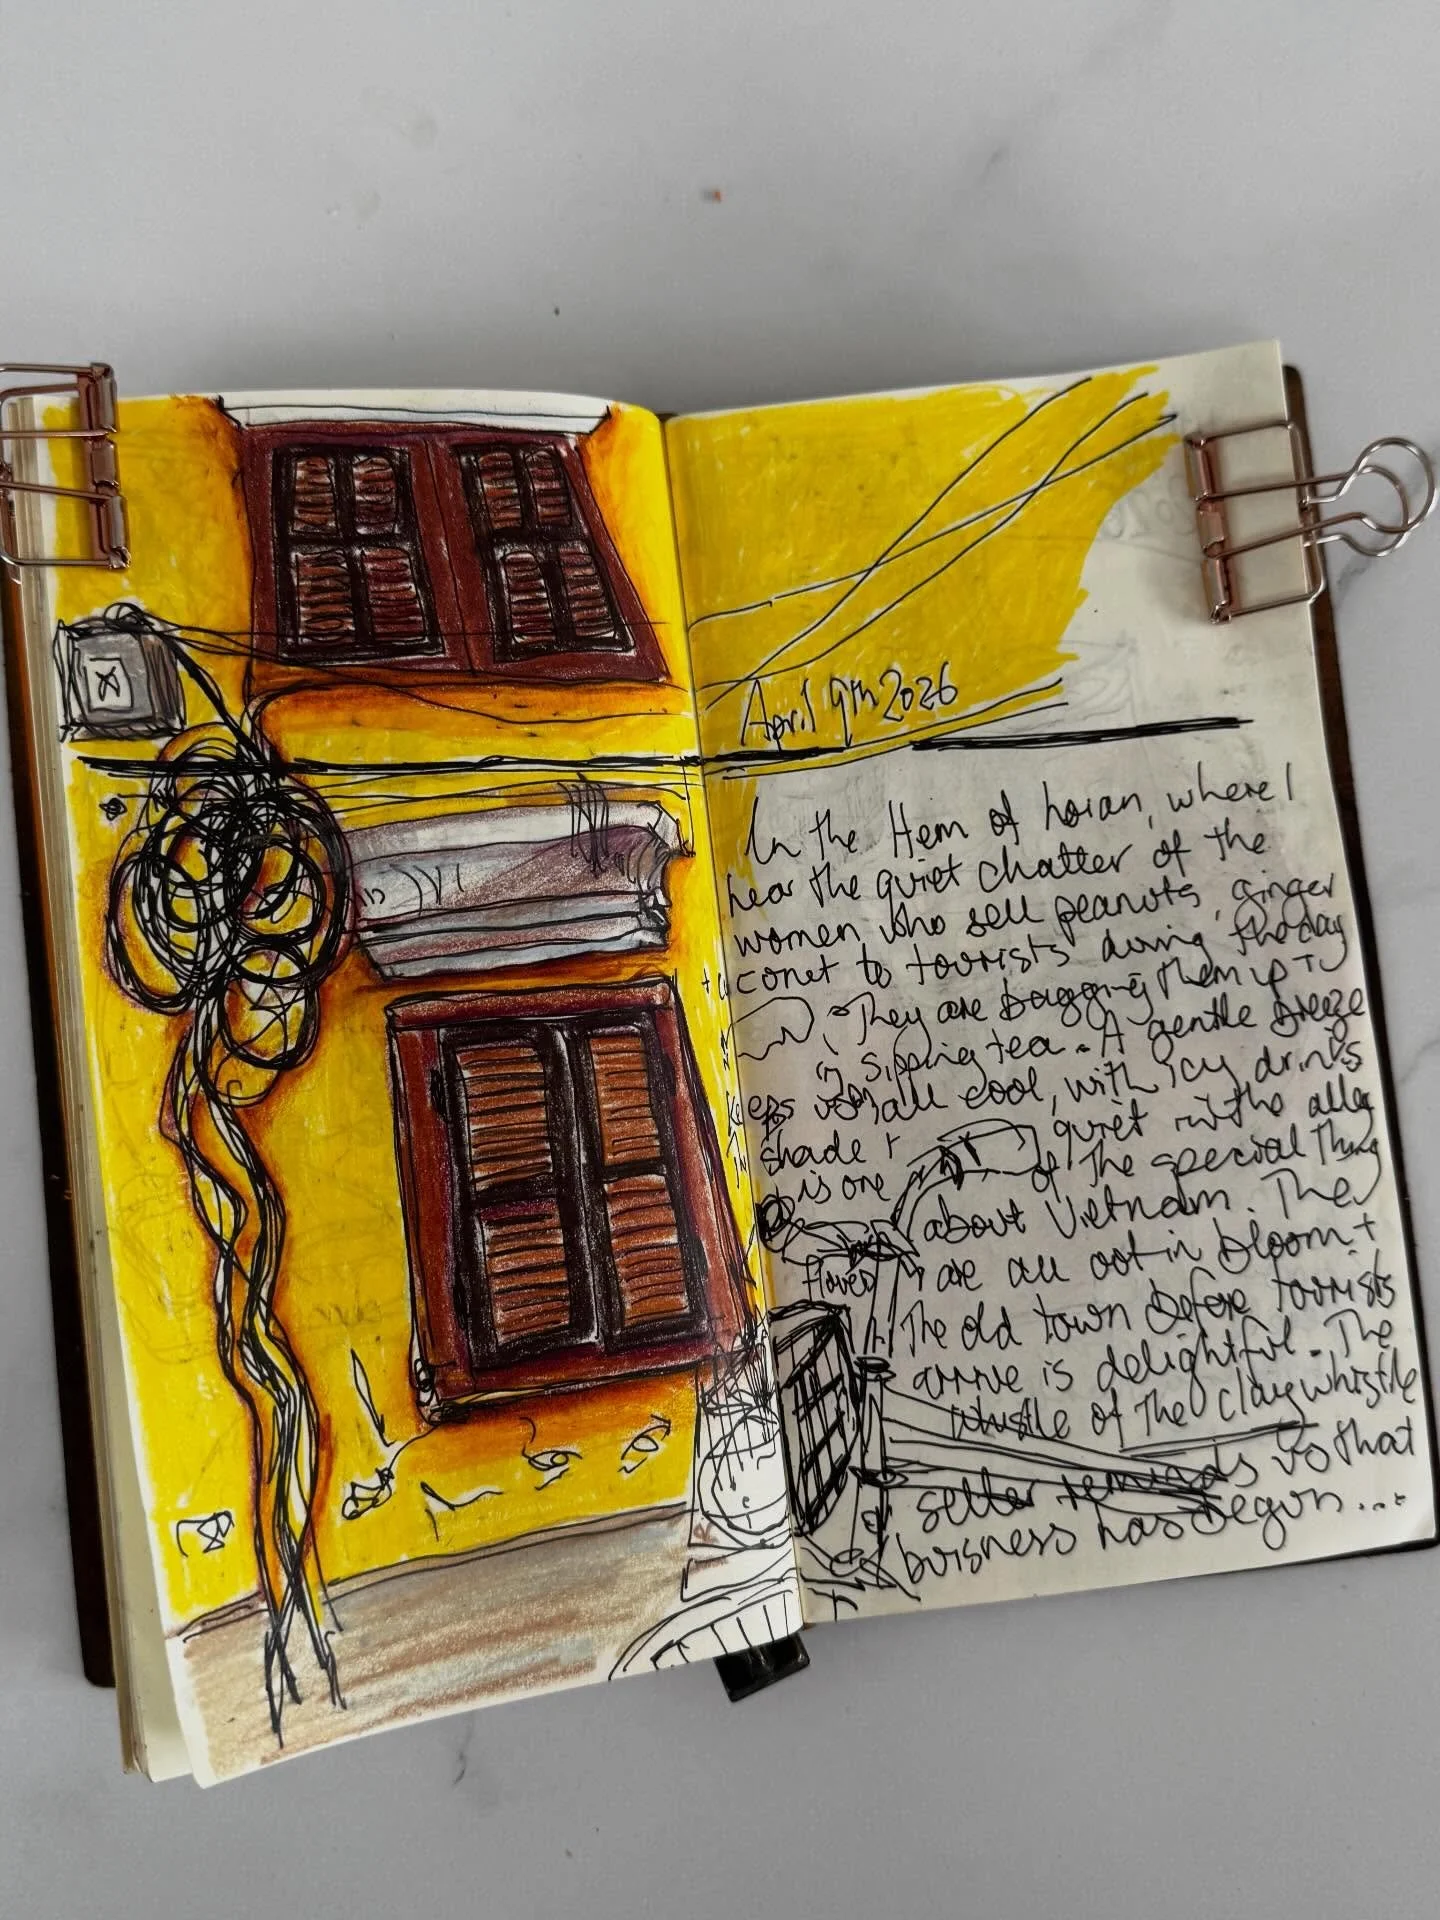 April 9th 2026
In the Hem of hoian, where I
hear the quiet chatter of the
women who sell peanuts, ginger
conet to tourists during the day
They are bagging them up
sipping tea. A gentle breeze
us all cool, with icy drinks
shade + quiet in the alley
is one of the special thing
about Vietnam. The
flowers are all out in bloom +
The old town before tourists
arrive is delightful. The
whistle of the clay whistle
seller reminds us that
buisness has begun...